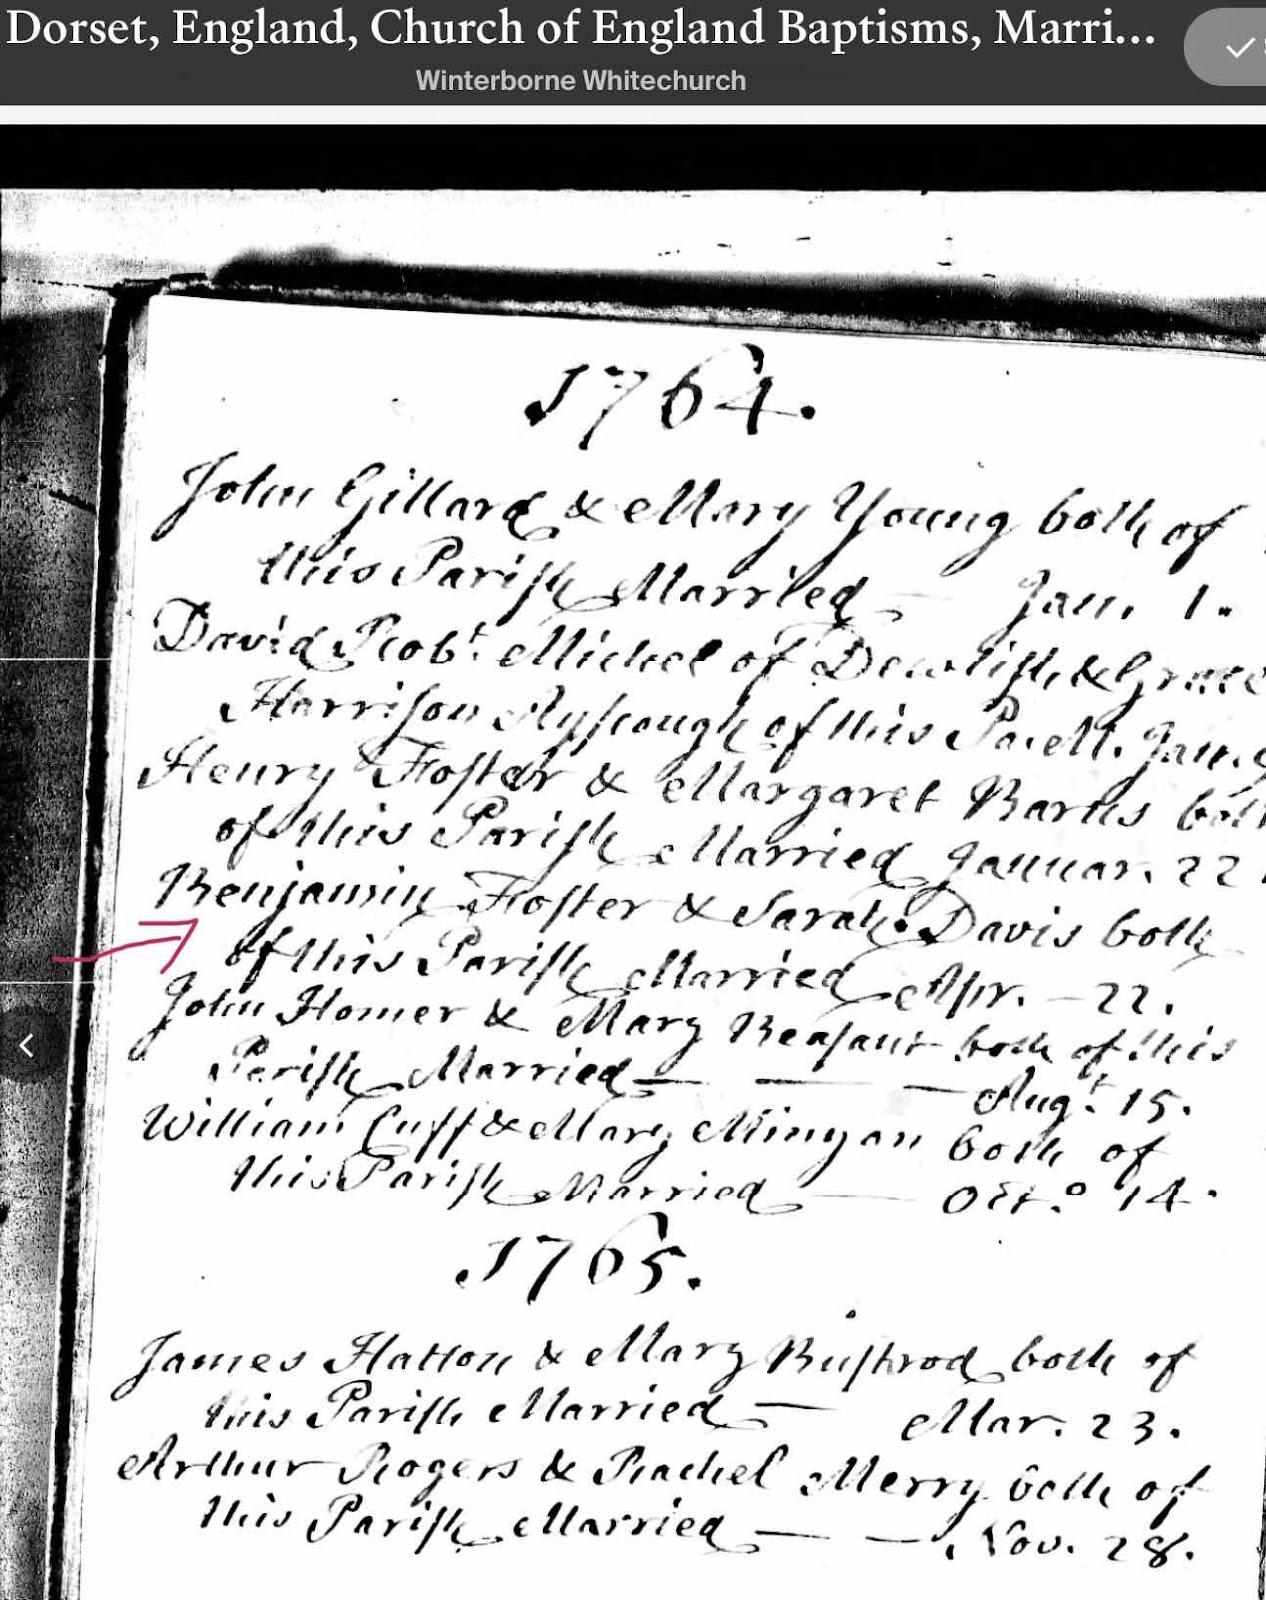 Dorset, England, Church of England Baptisms, Marri...
Winterborne Whitechurch
1764.
John Gillard & Mary Young both of
this Parish Married Jan. 1.
David Robt. Michel of Dewlish & Grace
Harrison Ayscough of this Jan.
Henry Foster & Margaret Barns both
of this Parish Married Januar. 22
Benjamin Foster & Sarah Davis both
of this Parish Married Apr. - 22.
John Homer & Mary Beasant both of this
Parish Married — — — Augt. 15.
William Cuff & Mary Minyan both of
this Parish Married — Octo. 14.
1765.
James Hatton & Mary Bushrod both of
this Parish Married — Mar. 23.
Arthur Rogers & Rachel Merry both of
this Parish Married — — Nov. 28.